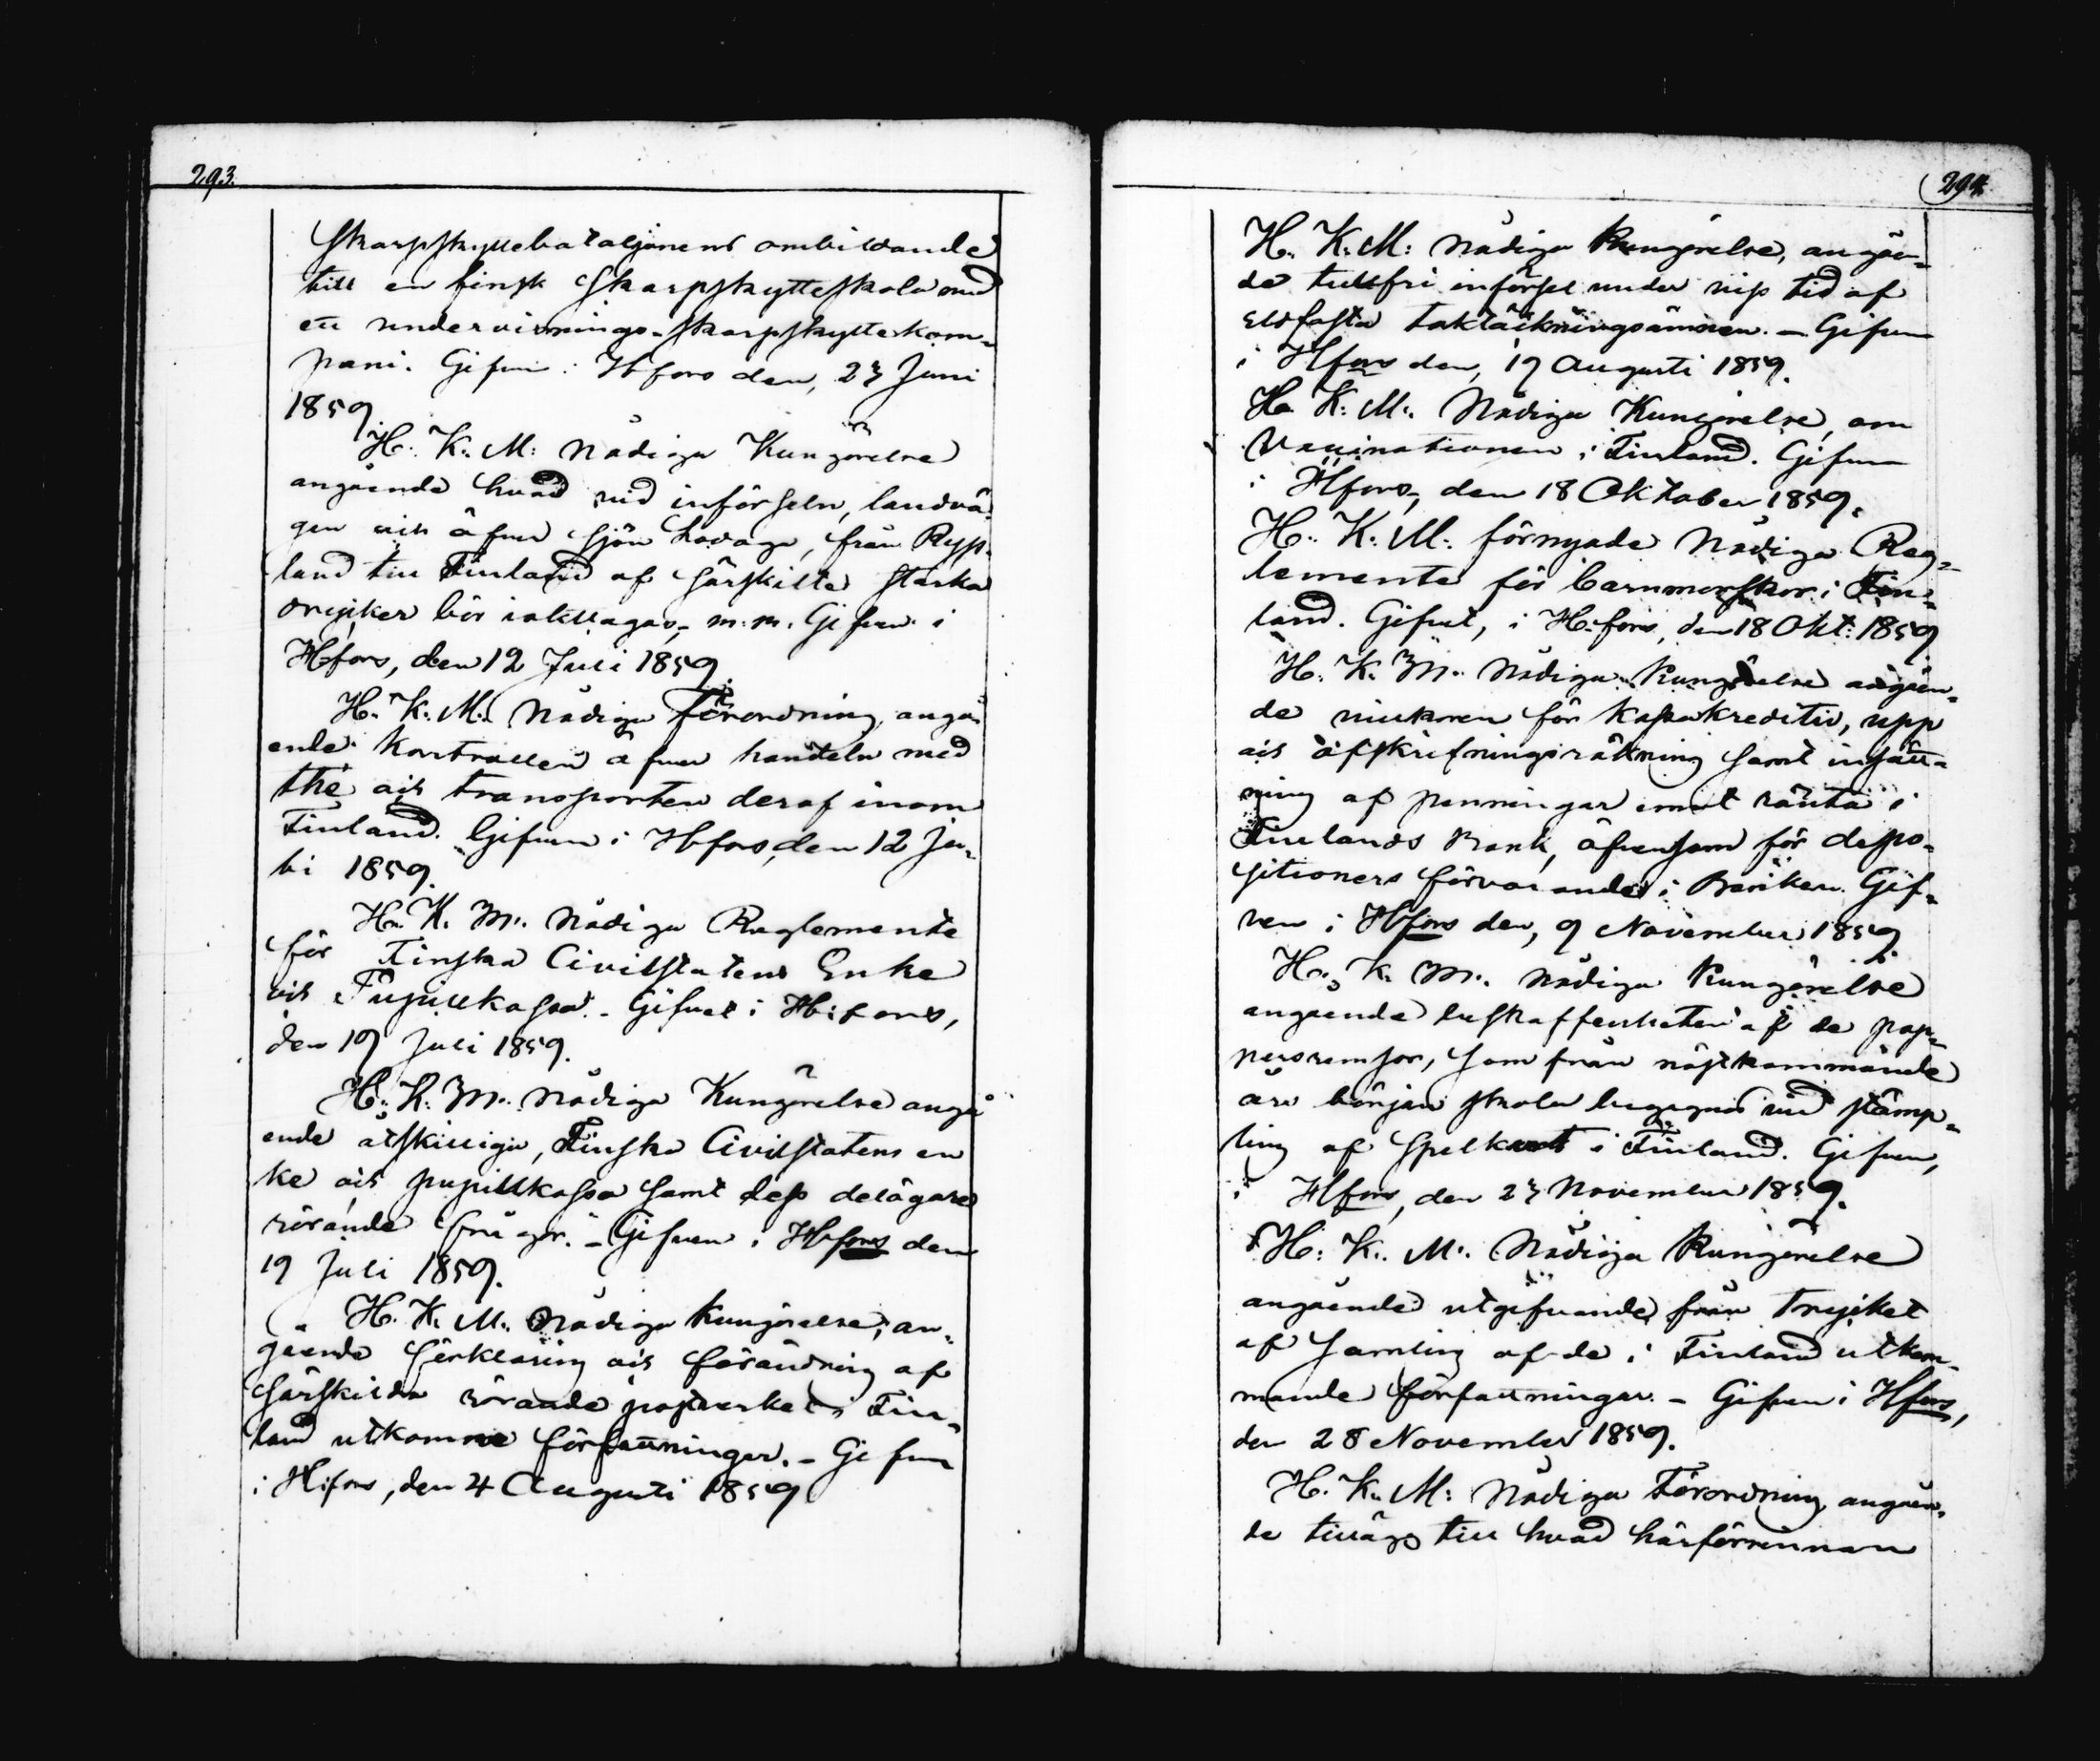 293.
Skarpskyttebataljonens ombildande
till en finsk Skarpskytteskola med
ett undervisnings-skarpskyttekom-
pani. Gifven i H:fors den, 23 Juni
1859.
H. K. M: Nådiga Kungörelse
angående hvad vid införseln, landvä-
gen och öfver sjön Ladoga, från Ryss-
land till Finland af särskilte starka
drycker bör iakttagas, m.m. Gifven i
H:fors, den 12 Juli 1859.
H. K. M: Nådiga Förordning, angå
ende kontrollen öfver handeln med
thé och transporten deraf inom
Finland. Gifven i H:fors, den 12 Ju-
li 1859.
H. K. M. Nådiga Reglemente
för Finska Civilstatens Enke
och Pupillkassa. - Gifvet i H:fors,
den 19 Juli 1859.
H. K. M. Nådiga Kungörelse angå
ende åtskilliga, Finska Civilstatens en
ke och pupillkassa samt dess delägare
rörande frågor. - Gifven i H:fors den
19 Juli 1859.
H. K. M. Nådiga kungörelse, an-
gående förklaring och förändring af
särskilda rörande postverket i Fin-
land utkomne författningar. - Gifven
i H:fors, den 4 Augusti 1859
294.
H. K. M: Nådiga Kungörelse, angåen-
de tullfri införsel under viss tid af
eldfasta taktäckningsämnen. - Gifven
i H:fors den, 19 Augusti 1859.
H. K. M. Nådiga Kungörelse, om
Vaccinationen i Finland. Gifven
i H:fors, den 18 Oktober 1859.
H. K. M. förnyade Nådiga Reg-
lemente för barnmorskor i Fin-
land. Gifvet, i H:fors, den 18 Okt: 1859
H. K. M. Nådiga Kungörelse angåen-
de vilkoren för kassakreditiv, upp
och afskrifningsräkning samt insätt-
ning af penningar emot ränta i
Finlands Bank, äfvensom för depo-
sitioners förvarande i Banken. Gif-
ven i H:fors den, 9 November 1859.
H. K. M. Nådiga Kungörelse
angående beskaffenheten af de pap-
persremsor, som från nästkommande
års början skola begagnas vid stämp-
ling af Spelkort i Finland. Gifven,
i H:fors, den 23 November 1859.
H. K. M. Nådiga Kungörelse
angående utgifvande från trycket
af samling af de i Finland utkom-
mande författningar. - Gifven i H:fors,
den 28 November 1859.
H. K. M: Nådiga Förordning angåen-
de tillägg till hvad härförrinnan